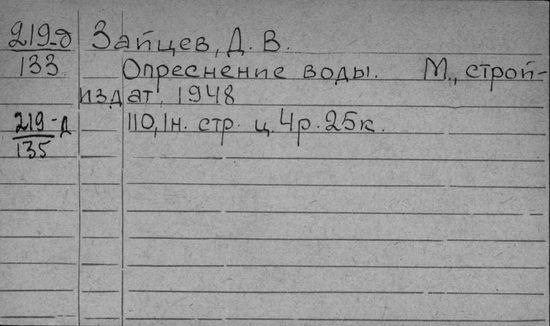 219-д Зайцев, Д. В.
133 Опреснение воды. М., строй-
издат, 1948
219-д 110,1н. стр. ц. 4р. 25к.
135